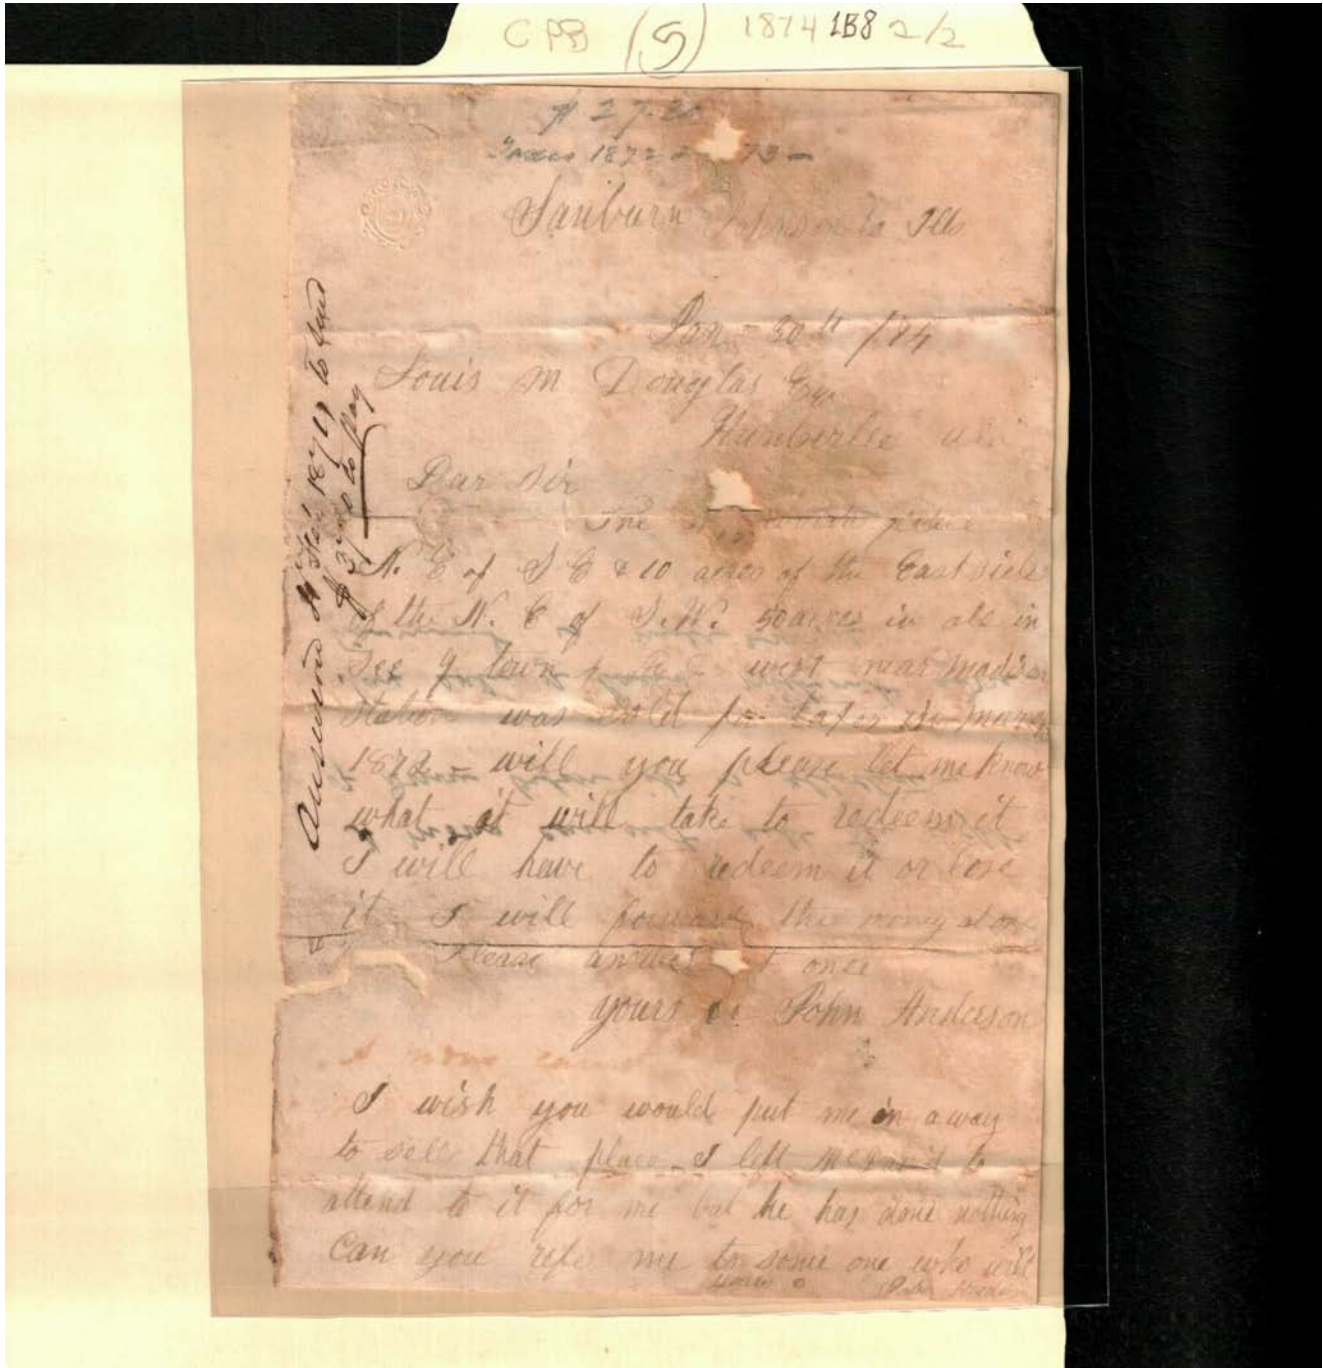 CPB (5) 1874 1B8 2/2
$27.20
Taxes 1872 73 –
Sanburn Johnson Co Ills
Jan 30th /74
Louis M Douglas Esq
Huntsville Ala
Dear Sir
The
N. E of S E & 10 acres of the East side
of the N. E of S. W. 50 acres in all in
Sec 9 town 4 R 2 west near Madison
Station was sold for taxes in
1872 – will you please let me know
what it will take to redeem it
I will have to redeem it or lose
it I will forward the money at once
Please answer at once
yours &c John Anderson
I wish you would put me in a way
to sell that place – I left to
attend to it for me but he has done nothing
Can you refer me to some one who will
yours &c John Anderson
Answered
to pay